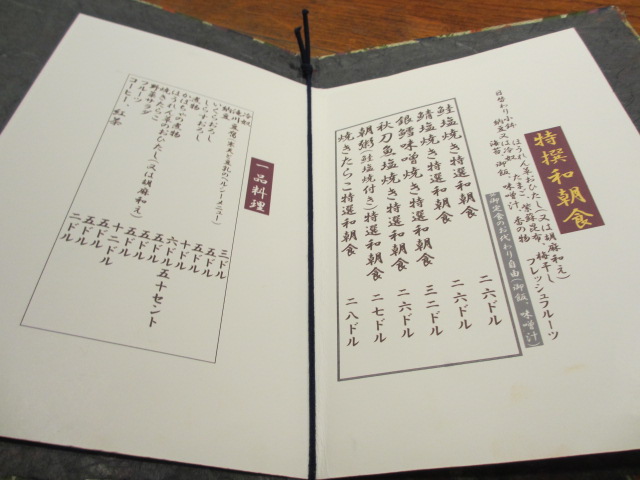 特撰和朝食
日替わり小鉢 ほうれん草おひたし(又は胡麻和え) フレッシュフルーツ
納豆又は冷奴 たまご 紫蘇昆布 梅干し
海苔 御飯 味噌汁 香の物
御定食のお代わり自由(御飯、味噌汁)
鮭塩焼き特選和朝食 二六ドル
鯖塩焼き特選和朝食 二六ドル
銀鱈味噌焼き特選和朝食 三二ドル
秋刀魚塩焼き特選和朝食 二六ドル
朝粥(鮭塩焼付き)特選和朝食 二七ドル
焼きたらこ特選和朝食 二八ドル
一品料理
冷奴 三ドル
五ドル
納豆 五ドル
しらすおろし
いくらおろし 十ドル
煮物
かぼちゃの煮物
ほうれん草のおひたし(又は胡麻和え)
焼きたらこ 十二ドル
野菜サラダ 五ドル
フルーツ 五ドル
コーヒー、紅茶 二ドル